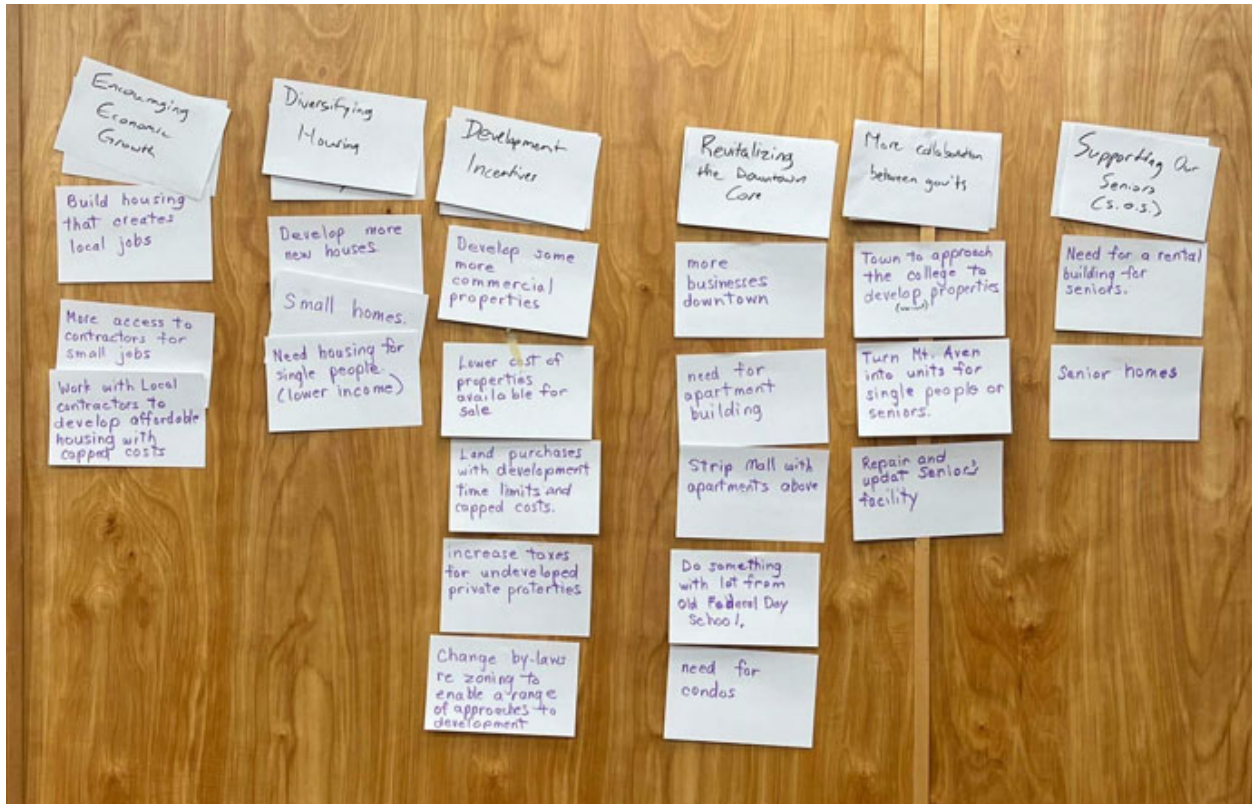 Encouraging
Economic
Growth
Build housing
that creates
local jobs
More access to
contractors for
small jobs
Work with Local
contractors to
develop affordable
housing with
capped costs
Diversifying
Housing
Develop more
new houses
Small homes.
Need housing for
single people.
(lower income)
Development
Incentives
Develop some
more
commercial
properties
Lower cost of
properties
available for
sale
Land purchases
with development
time limits and
capped costs.
increase taxes
for undeveloped
private proterties
Change by-laws
re zoning to
enable a range
of approaches to
development
Revitalizing
the Downtown
Core
more
businesses
downtown
need for
apartment
building
Strip Mall with
apartments above
Do something
with lot from
Old Federal Day
School.
need for
condos
More collaboration
between gov'ts
Town to approach
the college to
develop properties
Turn Mt. Aven
into units for
single people or
seniors.
Repair and
updat Senior's
facility
Supporting Our
Seniors
(S.O.S.)
Need for a rental
building for
seniors.
Senior homes